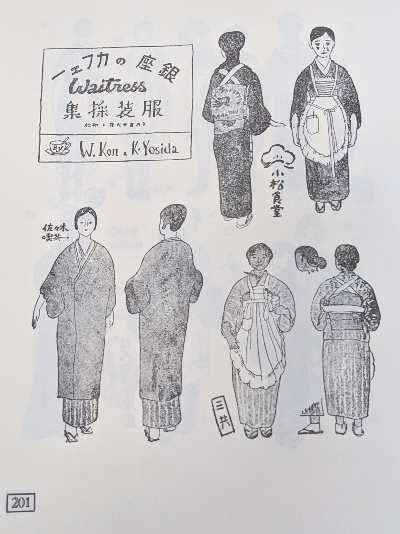 銀座のカフェー
Waitress
服装採集
W. Kon & K. Yosida
小松食堂
佐々木
喫茶
三共
201